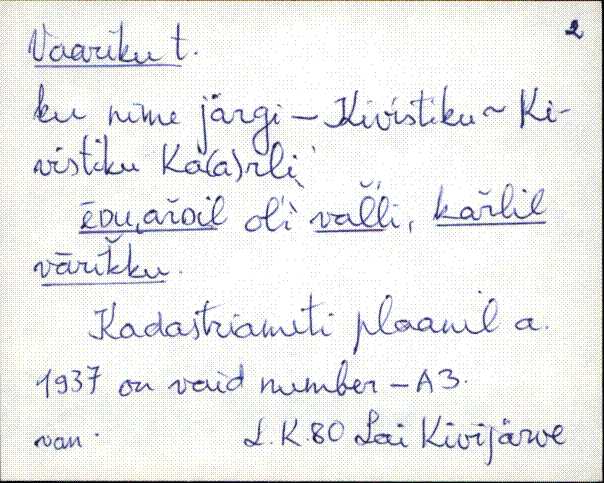 2
Vaariku t.
ku nime järgi – Kivistiku ~ Ki-
vistiku Ka(a)rli
ēᴅu̬ařᴅil oĺì vaĺĺi, kařlil
vāŕikku.
Kadastriameti plaanil a.
1937 on vaid number – A3.
van. L.K.80 Lai Kivijärve